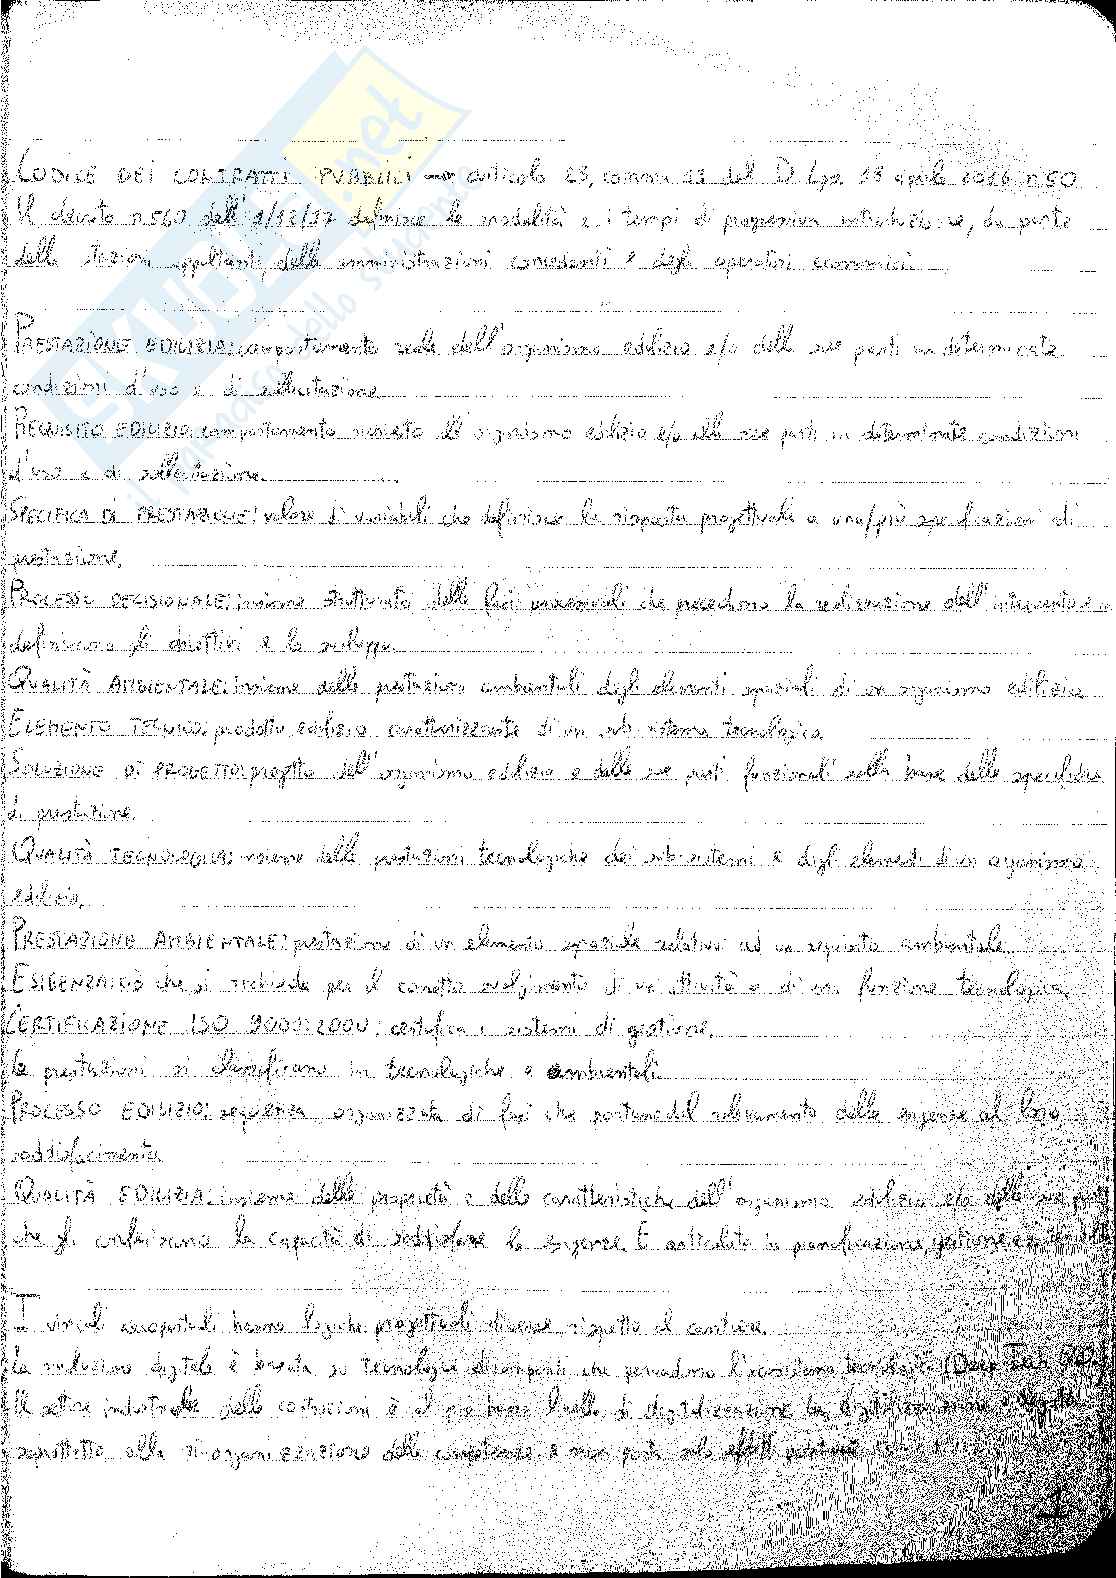 CODICE DEI CONTRATTI PUBBLICI → articolo 23, comma 13 del D.Lgs. 18 aprile 2016 n.50
Il decreto n.560 dell'1/12/17 definisce le modalità e i tempi di progressiva introduzione, da parte
delle stazioni appaltanti, delle amministrazioni concedenti e degli operatori economici
PRESTAZIONE EDILIZIA: comportamento reale dell'organismo edilizio e/o delle sue parti in determinate
condizioni d'uso e di sollecitazione
REQUISITO EDILIZIO: comportamento richiesto all'organismo edilizio e/o alle sue parti in determinate condizioni
d'uso e di sollecitazione.
SPECIFICA DI PRESTAZIONE: valore di variabili che definisce la risposta progettuale a una/più specificazioni di
prestazione.
PROCESSO DECISIONALE: insieme strutturato delle fasi processuali che precedono la realizzazione dell'intervento e
definiscono gli obiettivi e lo sviluppo
QUALITÀ AMBIENTALE: insieme delle prestazioni ambientali degli elementi spaziali di un organismo edilizio
ELEMENTO TECNICO: prodotto edilizio caratterizzante di un sub sistema tecnologico
SOLUZIONE DI PROGETTO: progetto dell'organismo edilizio e delle sue parti funzionali sulla base delle specifiche
di prestazione.
QUALITÀ TECNOLOGICA: insieme delle prestazioni tecnologiche dei sub-sistemi e degli elementi di un organismo
edilizio.
PRESTAZIONE AMBIENTALE: prestazione di un elemento spaziale relativa ad un requisito ambientale
ESIGENZA: ciò che si richiede per il corretto svolgimento di un'attività o di una funzione tecnologica.
CERTIFICAZIONE ISO 9000:2000: certifica i sistemi di gestione.
Le prestazioni si classificano in tecnologiche e ambientali.
PROCESSO EDILIZIO: sequenza organizzata di fasi che portano dal rilevamento delle esigenze al loro
soddisfacimento
QUALITÀ EDILIZIA: insieme delle proprietà e delle caratteristiche dell'organismo edilizio e/o delle sue parti
che gli conferiscono la capacità di soddisfare le esigenze. È articolata in pianificazione, gestione e
I vincoli aeroportuali hanno logiche progettuali diverse rispetto al cantiere.
La rivoluzione digitale è basata su tecnologie dirompenti che pervadono l'ecosistema tecnologico (Deep Tech
Il settore industriale delle costruzioni è al più basso livello di digitalizzazione. La digitalizzazione è
soprattutto alla riorganizzazione delle competenze e non porta solo effetti positivi
1
SKUOLA.net
il paradiso dello studente